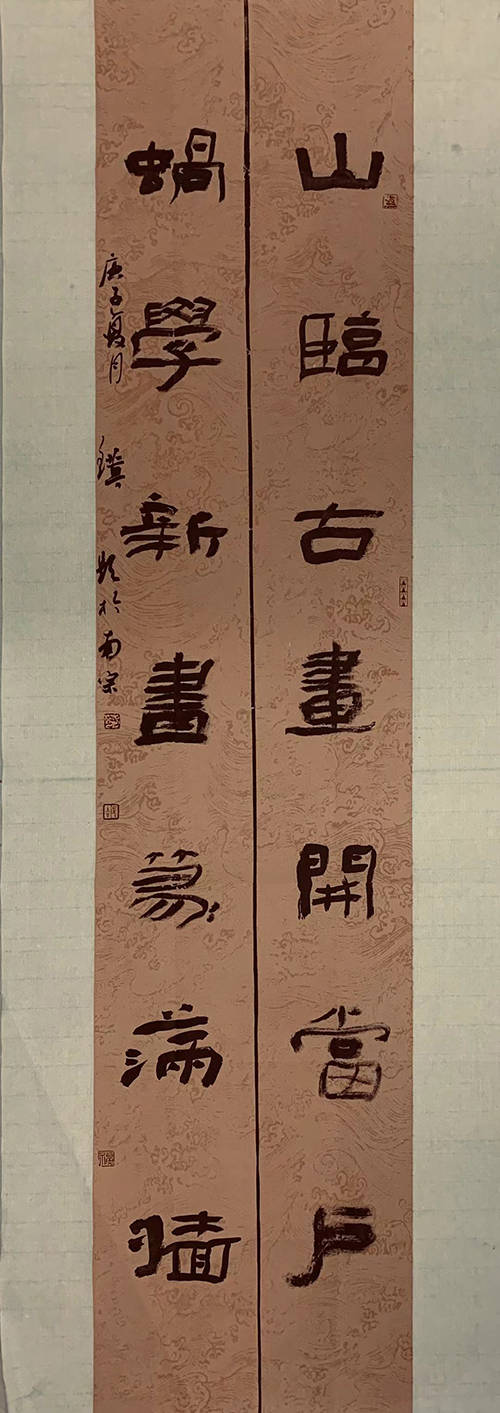 山臨古畫開當戶
蝸學新書篆滿牆
庚子夏月 題於南宗